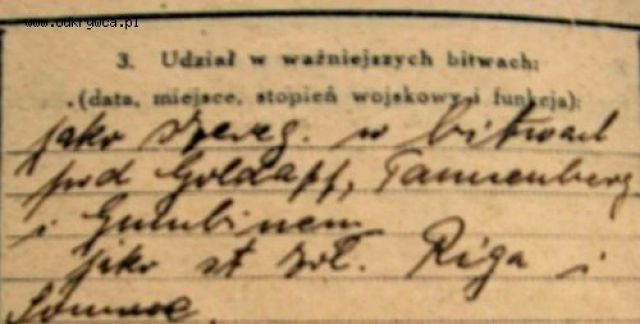 www.odkrywca.pl
3. Udział w ważniejszych bitwach:
(data, miejsce, stopień wojskowy i funkcja):
jako szereg. w bitwach
pod Goldapf, Tannenberg
i Gumbinem
jako st żoł. Riga i